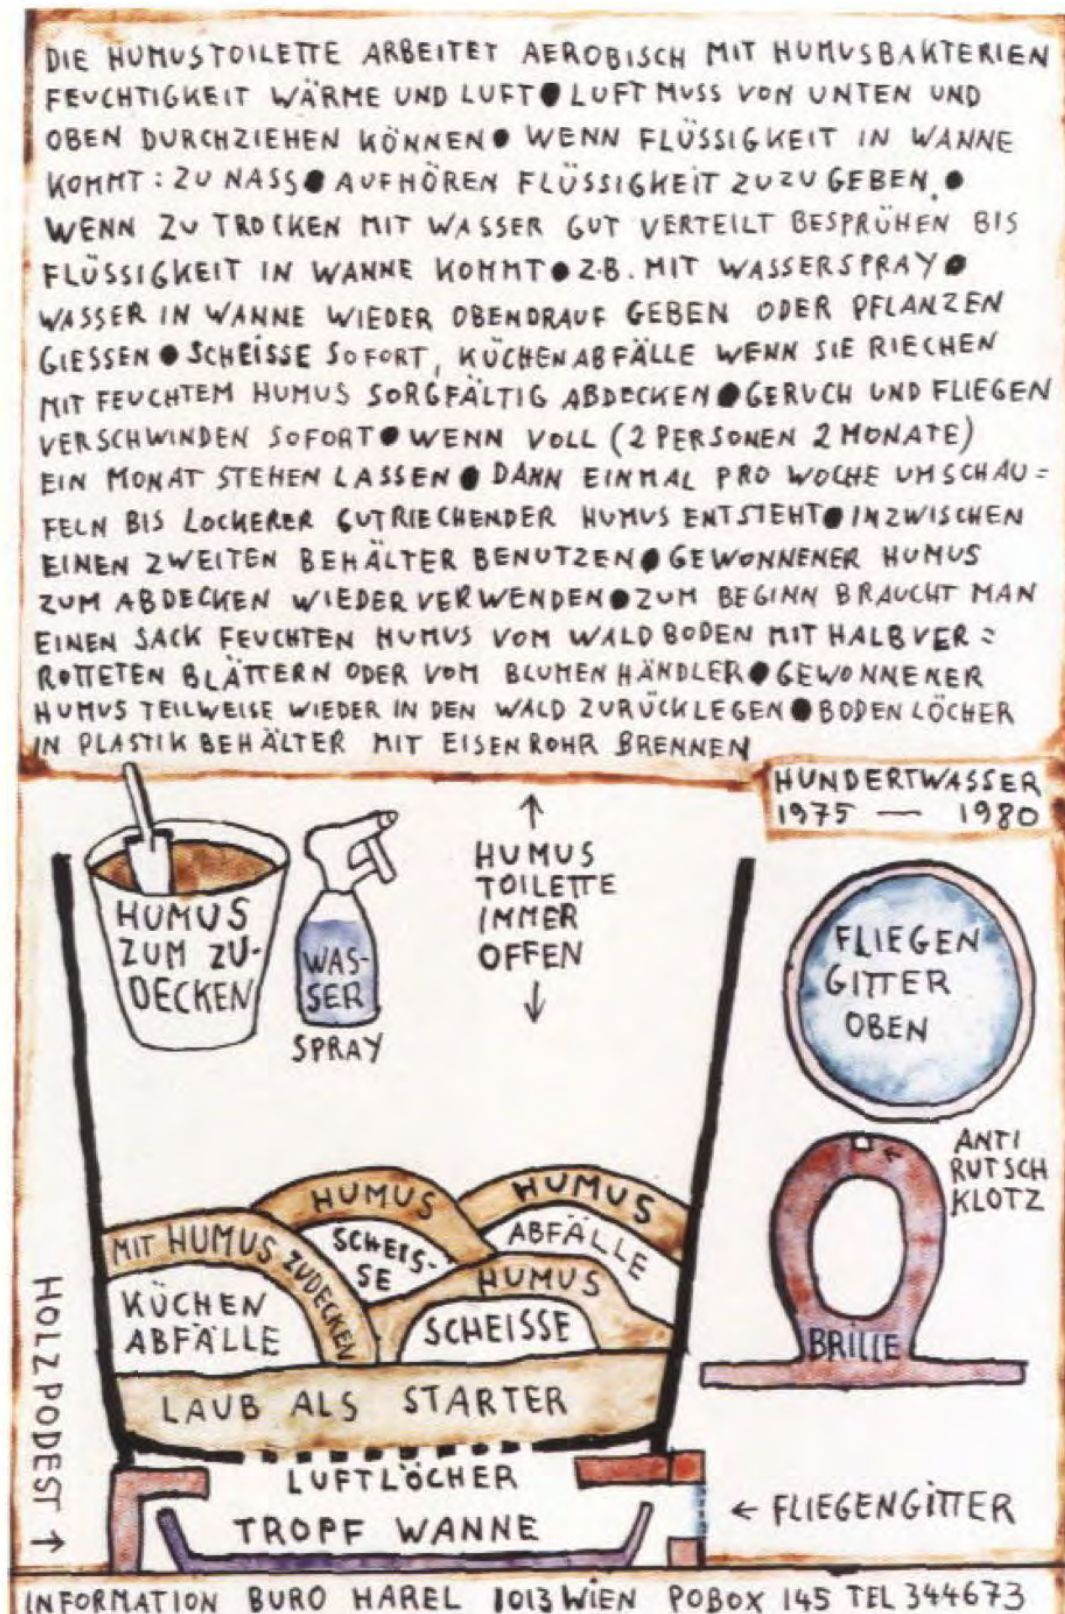 DIE HUMUSTOILETTE ARBEITET AEROBISCH MIT HUMUSBAKTERIEN
FEUCHTIGKEIT WÄRME UND LUFT ● LUFT MUSS VON UNTEN UND
OBEN DURCHZIEHEN KÖNNEN ● WENN FLÜSSIGKEIT IN WANNE
KOMMT : ZU NASS ● AUFHÖREN FLÜSSIGKEIT ZUZUGEBEN. ●
WENN ZU TROCKEN MIT WASSER GUT VERTEILT BESPRÜHEN BIS
FLÜSSIGKEIT IN WANNE KOMMT ● Z.B. MIT WASSERSPRAY ●
WASSER IN WANNE WIEDER OBENDRAUF GEBEN ODER PFLANZEN
GIESSEN ● SCHEISSE SOFORT, KÜCHENABFÄLLE WENN SIE RIECHEN
MIT FEUCHTEM HUMUS SORGFÄLTIG ABDECKEN ● GERUCH UND FLIEGEN
VERSCHWINDEN SOFORT ● WENN VOLL (2 PERSONEN 2 MONATE)
EIN MONAT STEHEN LASSEN ● DANN EINMAL PRO WOCHE UMSCHAU=
FELN BIS LOCKERER GUTRIECHENDER HUMUS ENTSTEHT ● INZWISCHEN
EINEN ZWEITEN BEHÄLTER BENUTZEN ● GEWONNENER HUMUS
ZUM ABDECKEN WIEDER VERWENDEN ● ZUM BEGINN BRAUCHT MAN
EINEN SACK FEUCHTEN HUMUS VOM WALDBODEN MIT HALBVER=
ROTTETEN BLÄTTERN ODER VOM BLUMENHÄNDLER ● GEWONNENER
HUMUS TEILWEISE WIEDER IN DEN WALD ZURÜCKLEGEN ● BODENLÖCHER
IN PLASTIKBEHÄLTER MIT EISENROHR BRENNEN
HUNDERTWASSER
1975 — 1980
HUMUS
ZUM ZU-
DECKEN
WAS-
SER
SPRAY
↑
HUMUS
TOILETTE
IMMER
OFFEN
↓
FLIEGEN
GITTER
OBEN
ANTI
RUTSCH
KLOTZ
←
BRILLE
HUMUS
SCHEIS-
SE
HUMUS
ABFÄLLE
MIT HUMUS ZUDECKEN
KÜCHEN
ABFÄLLE
HUMUS
SCHEISSE
LAUB ALS STARTER
LUFTLÖCHER
TROPF WANNE
HOLZPODEST →
← FLIEGENGITTER
INFORMATION BURO HAREL 1013 WIEN POBOX 145 TEL 344673